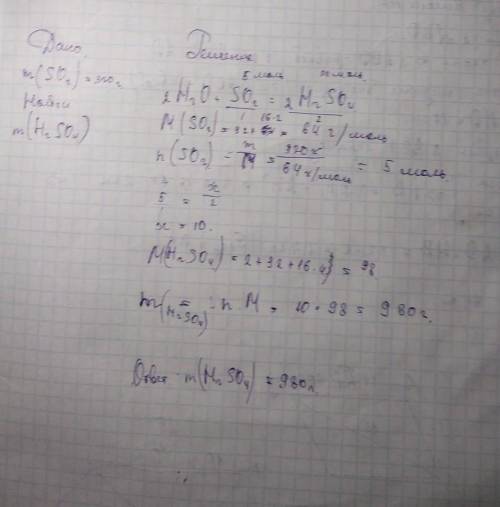 Дано
m(SO₂) = 320г
Найти
m(H₂SO₄)
Решение
5 моль x моль
2H₂O + SO₂ = 2H₂SO₄
1 2
M(SO₂) = 32 + 16·2 = 64 г/моль
n(SO₂) = m/M = 320г / 64 г/моль = 5 моль
5/1 = x/2
x = 10.
M(H₂SO₄) = 2 + 32 + 16·4 = 98
m(H₂SO₄) = n · M = 10 · 98 = 980г.
Ответ m(H₂SO₄) = 980г